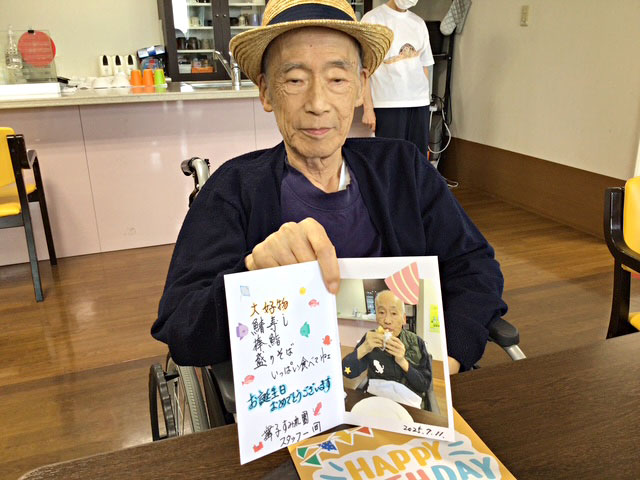 大好物
鯖寿し
棒鮨
盛りそば
いっぱい食べてネ
お誕生日
おめでとうございます
スタッフ一同
2025.7.11.
HAPPY
BIRTHDAY